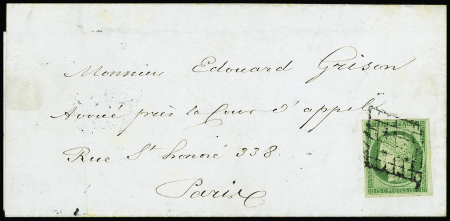 Monsieur Edouard Grison
Avoué près la Cour d'appel
Rue St honoré 338.
Paris